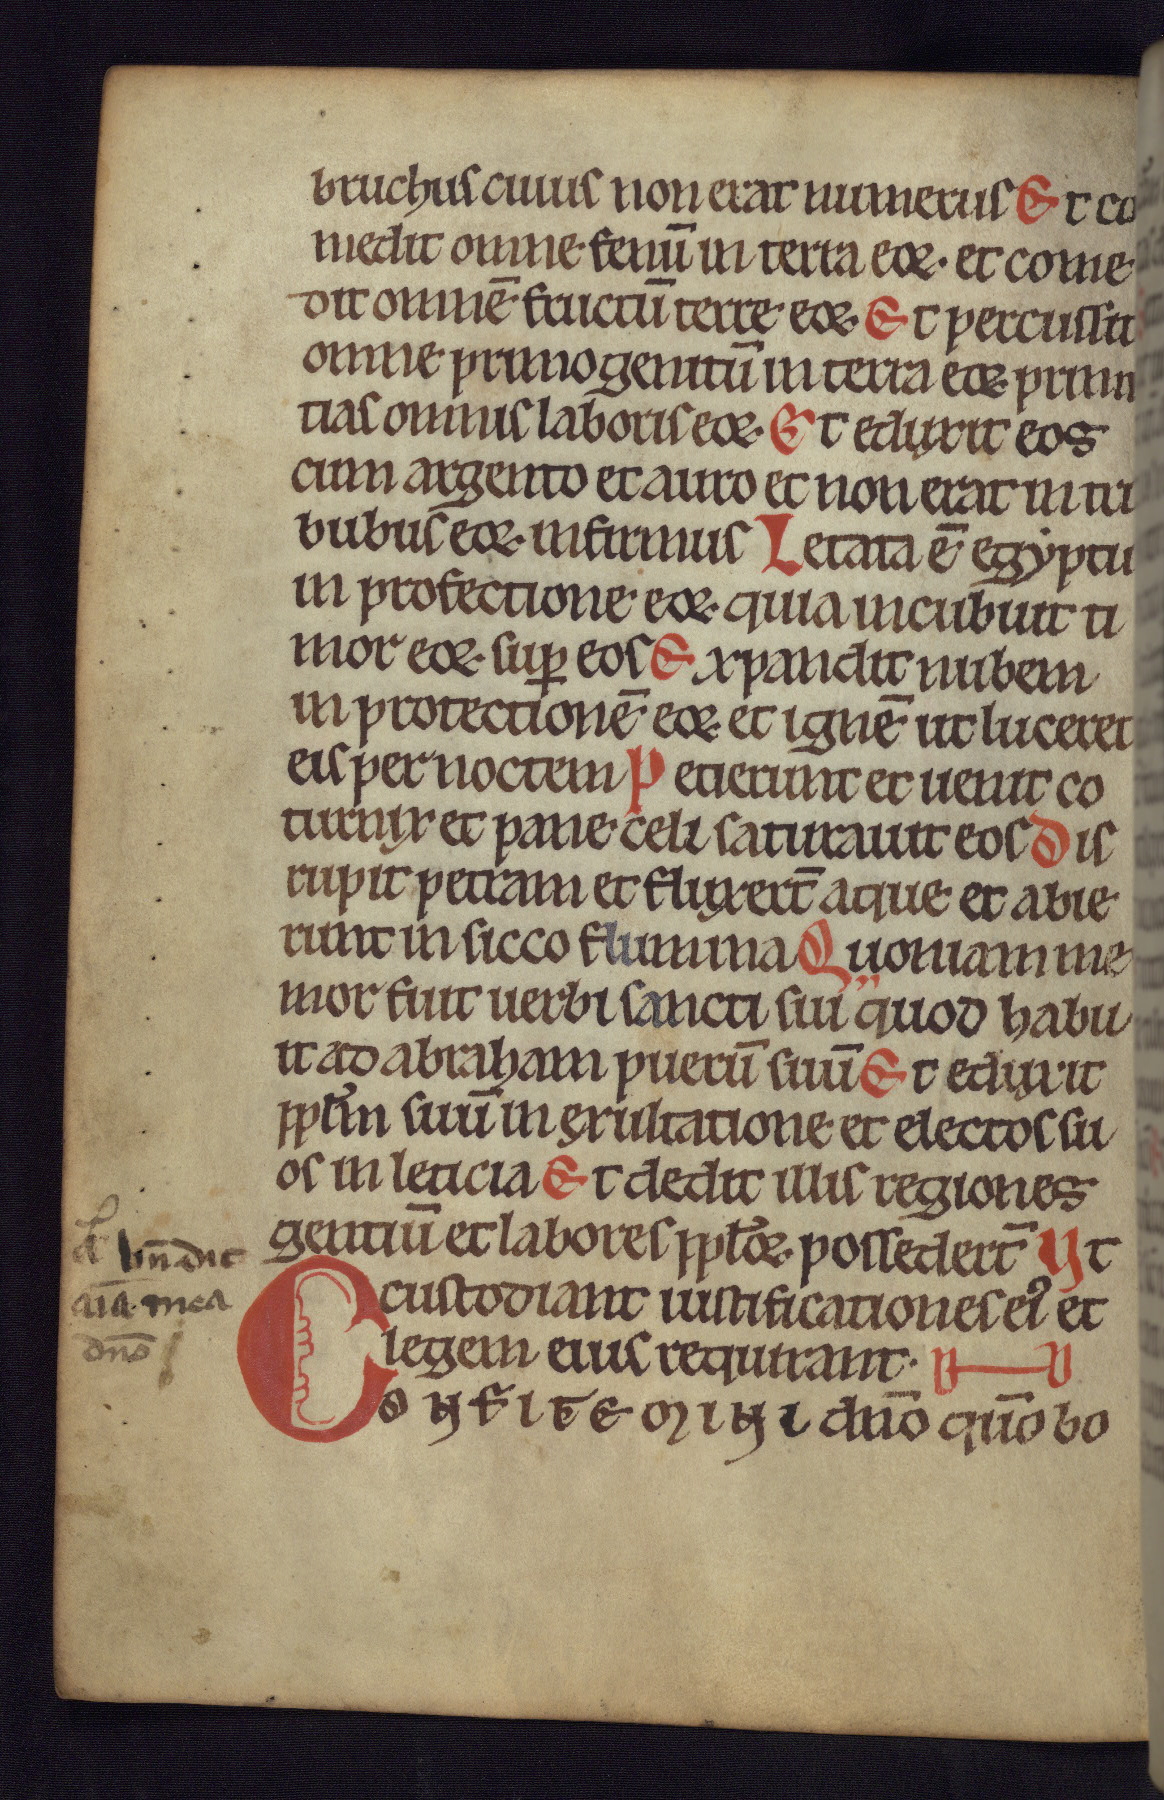 bruchus cuius non erat numerus Et co
medit omne fenū in terra eoꝝ· et come
dit omnē fructū terre eoꝝ· Et percussit
omne primogenitū in terra eoꝝ primi
tias omnis laboris eoꝝ· Et eduxit eos
cum argento et auro et non erat in tri
bubus eoꝝ· infirmus Letata ē egyptu
in profectione eoꝝ· quia incubuit ti
mor eoꝝ· suꝑ eos Expandit nubem
in protectionē eoꝝ et ignē ut luceret
eis per noctem Petierunt et uenit co
turnix et pane celi saturauit eos Dis
rupit petram et fluxert̄ aque et abie
runt in sicco flumina Quoniam me
mor fuit uerbi sancti sui quod habu
it ad abraham puerū suū Et eduxit
pplm̄ suū in exultatione et electos su
os in leticia Et dedit illis regiones
gentiū et labores pploꝝ· possedert̄ Ut
custodiant iustificationes ei᾽ et
legem eius requirant·
Confitēemini dn̄o qm̄o bo
bn̄dic
aīa mea
dn̄o